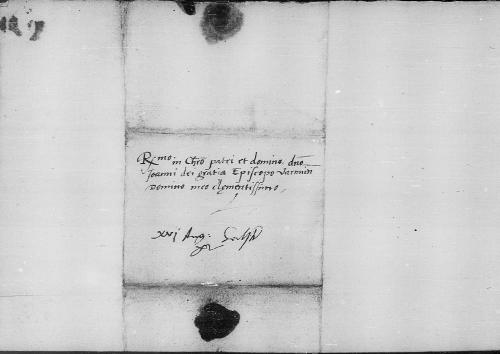 R^mo in Chro patri et domino dno
Joanni dei gratia Episcopo Varmien
Domino meo clementissimo
xxj Aug: